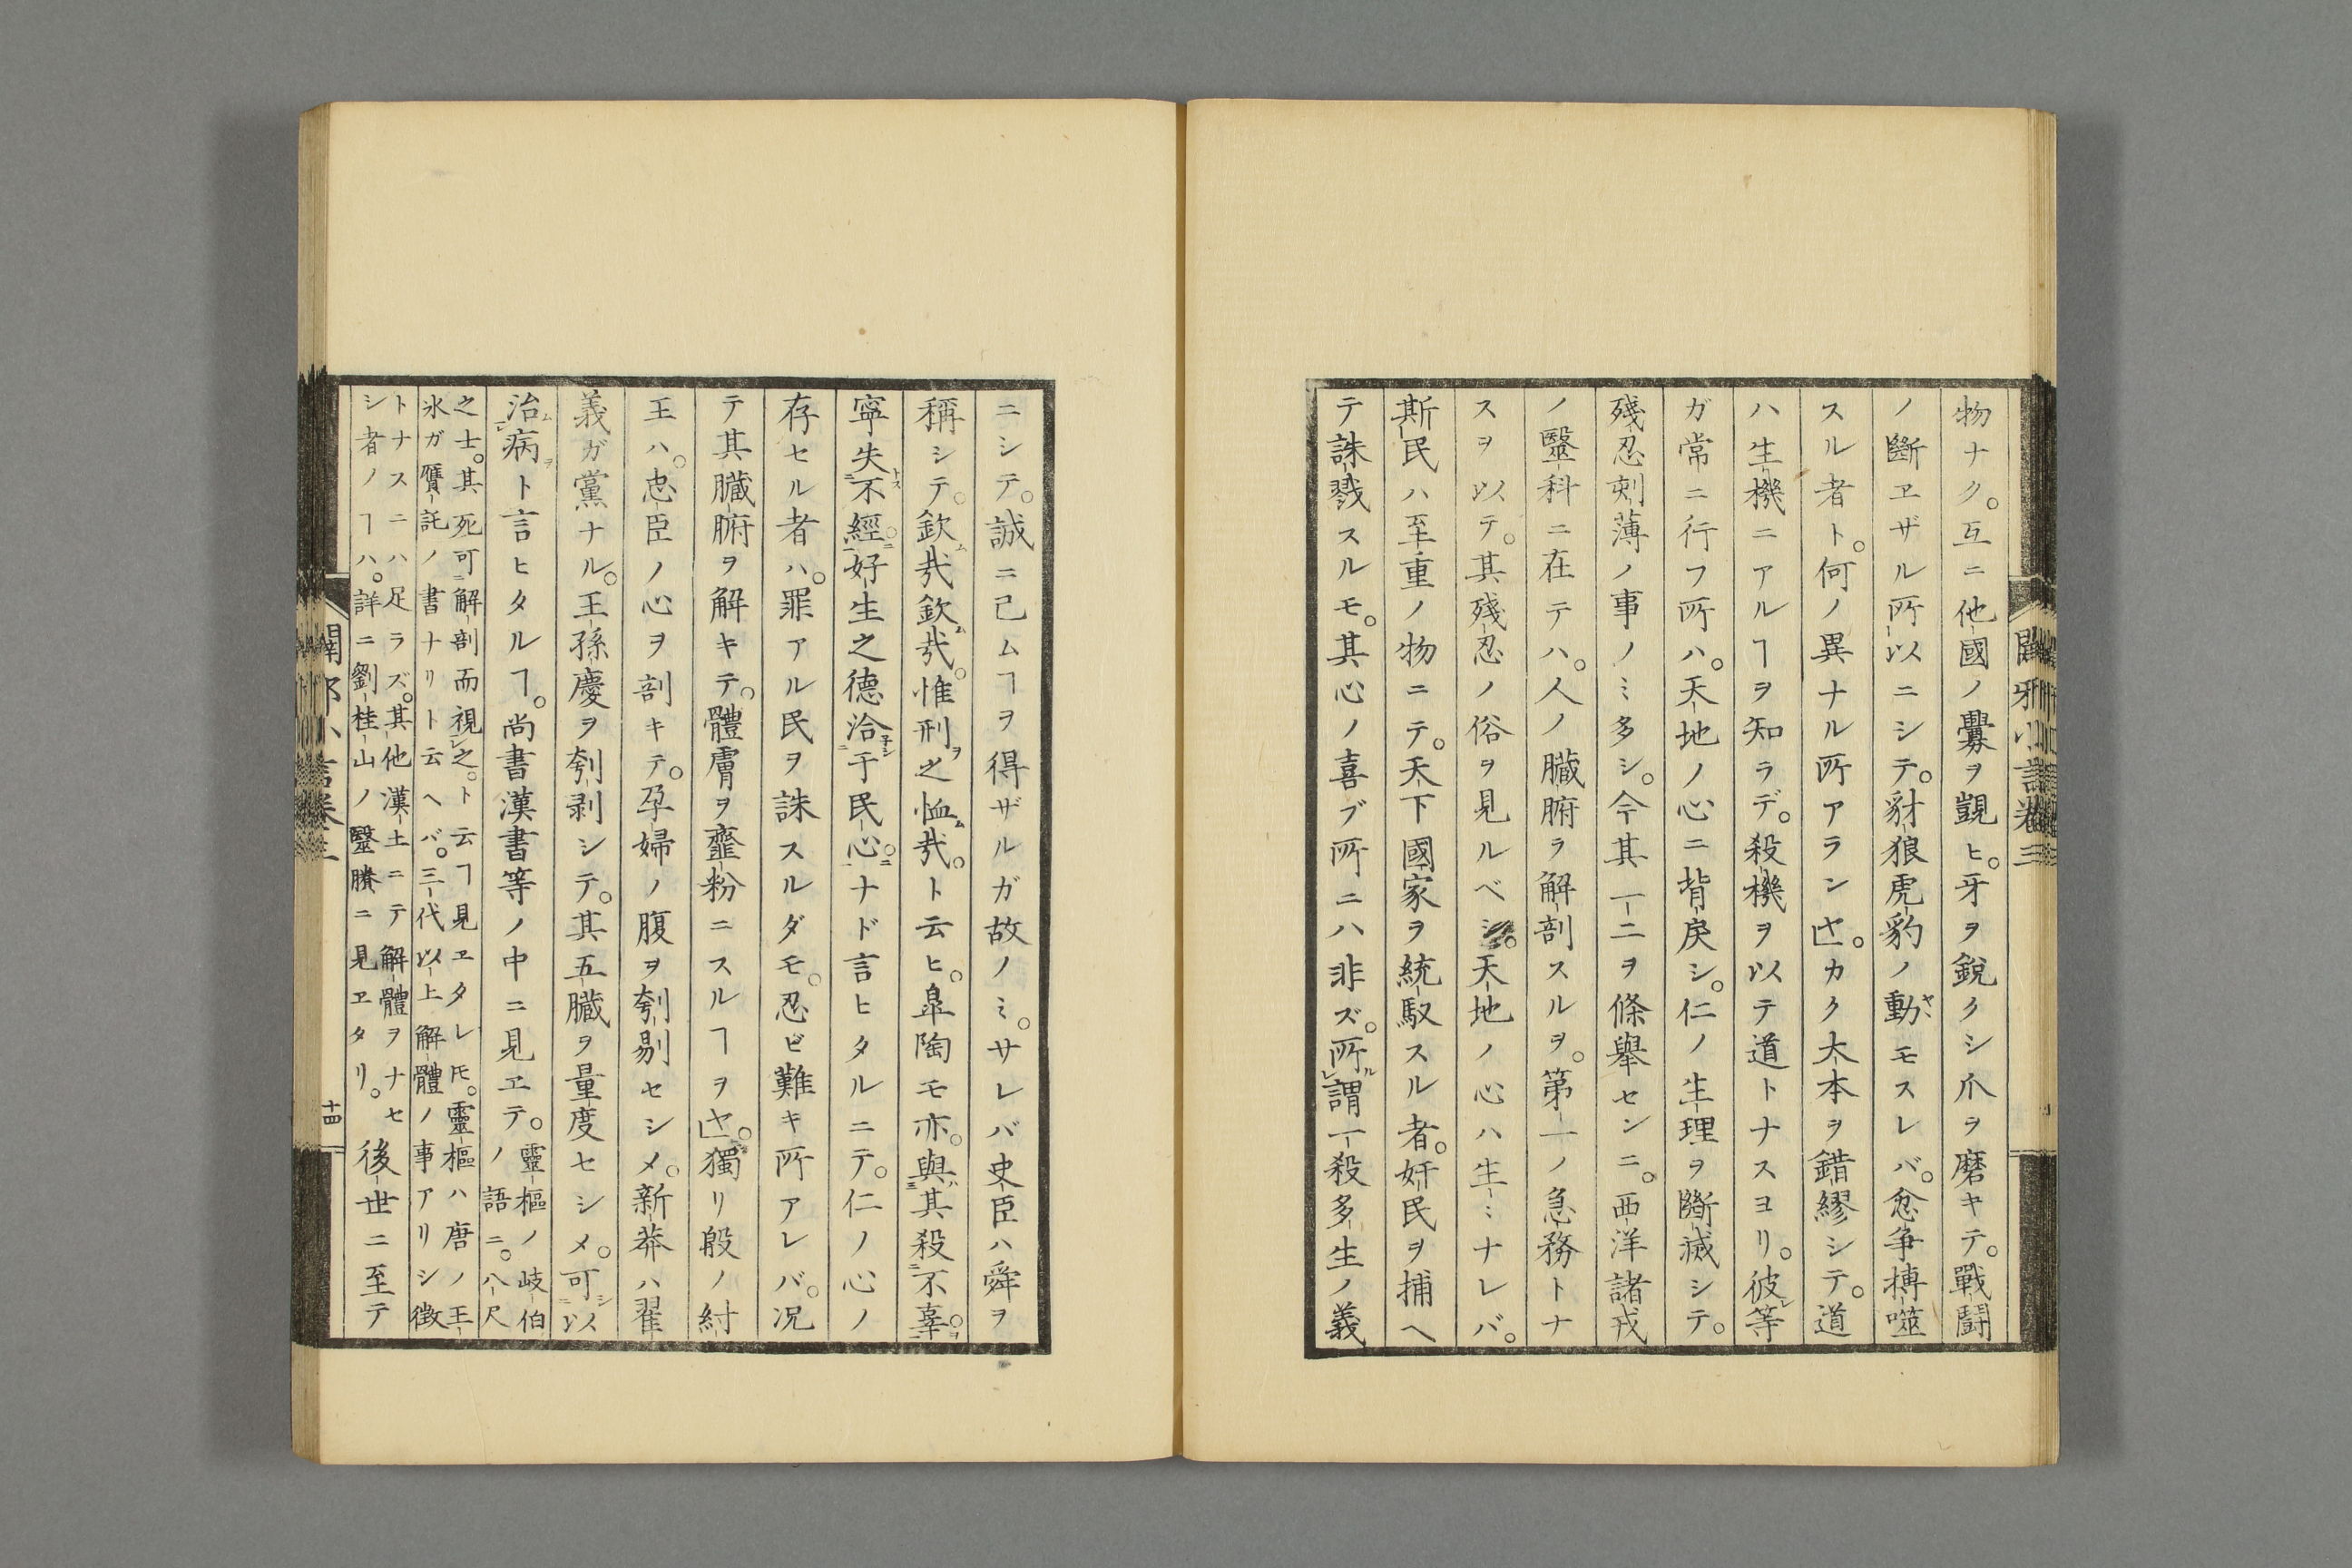 物ナク。互ニ他國ノ釁ヲ覬ヒ。牙ヲ銳クシ爪ヲ磨キテ。戰鬪
ノ斷ヱザル所以ニシテ。豺狼虎豹ノ動モスレバ。忿争搏噬
スル者ト。何ノ異ナル所アラン𪜈。カク大本ヲ錯繆シテ。道
ハ生機ニアルヿヲ知ラデ。殺機ヲ以テ道トナスヨリ。彼等
ガ常ニ行フ所ハ。天地ノ心ニ背戾シ。仁ノ生理ヲ斷滅シテ。
殘忍刻薄ノ事ノミ多シ。今其一二ヲ條舉センニ。西洋諸戎
ノ毉科ニ在テハ。人ノ臟腑ヲ解剖スルヲ。第一ノ急務トナ
スヲ以テ。其殘忍ノ俗ヲ見ルベシ。天地ノ心ハ生〻ナレバ。
斯民ハ至重ノ物ニテ。天下國家ヲ統馭スル者。奸民ヲ捕ヘ
テ誅戮スルモ。其心ノ喜ブ所ニハ非ズ。所謂一殺多生ノ義
ニシテ。誠ニ已ムヿヲ得ザルガ故ノミ。サレバ史臣ハ舜ヲ
稱シテ。欽哉欽哉。惟刑之恤哉。ト云ヒ。皐陶モ亦。與其殺不辜。
寧失不經。好生之德洽于民心。ナド言ヒタルニテ。仁ノ心ノ
存セル者ハ。罪アル民ヲ誅スルダモ。忍ビ難キ所アレバ。况
テ其臟腑ヲ解キテ。體膚ヲ虀粉ニスルヿヲ𪜈。獨リ殷ノ紂
王ハ。忠臣ノ心ヲ剖キテ。孕婦ノ腹ヲ刳剔セシメ。新莽ハ翟
義ガ黨ナル。王孫慶ヲ刳剥シテ。其五臟ヲ量度セシメ。可以
治病ト言ヒタルヿ。尚書漢書等ノ中ニ見ヱテ。靈樞ノ岐伯
ノ語ニ。八尺
之士。其死可解剖而視之。ト云ヿ見ヱタレ𪜈。靈樞ハ唐ノ王
氷ガ贋託ノ書ナリト云ヘバ。三代以上解體ノ事アリシ徴
トナスニハ足ラズ。其他漢土ニテ解體ヲナセ
シ者ノヿハ。詳ニ劉桂山ノ毉賸ニ見ヱタリ。後世ニ至テ
十四